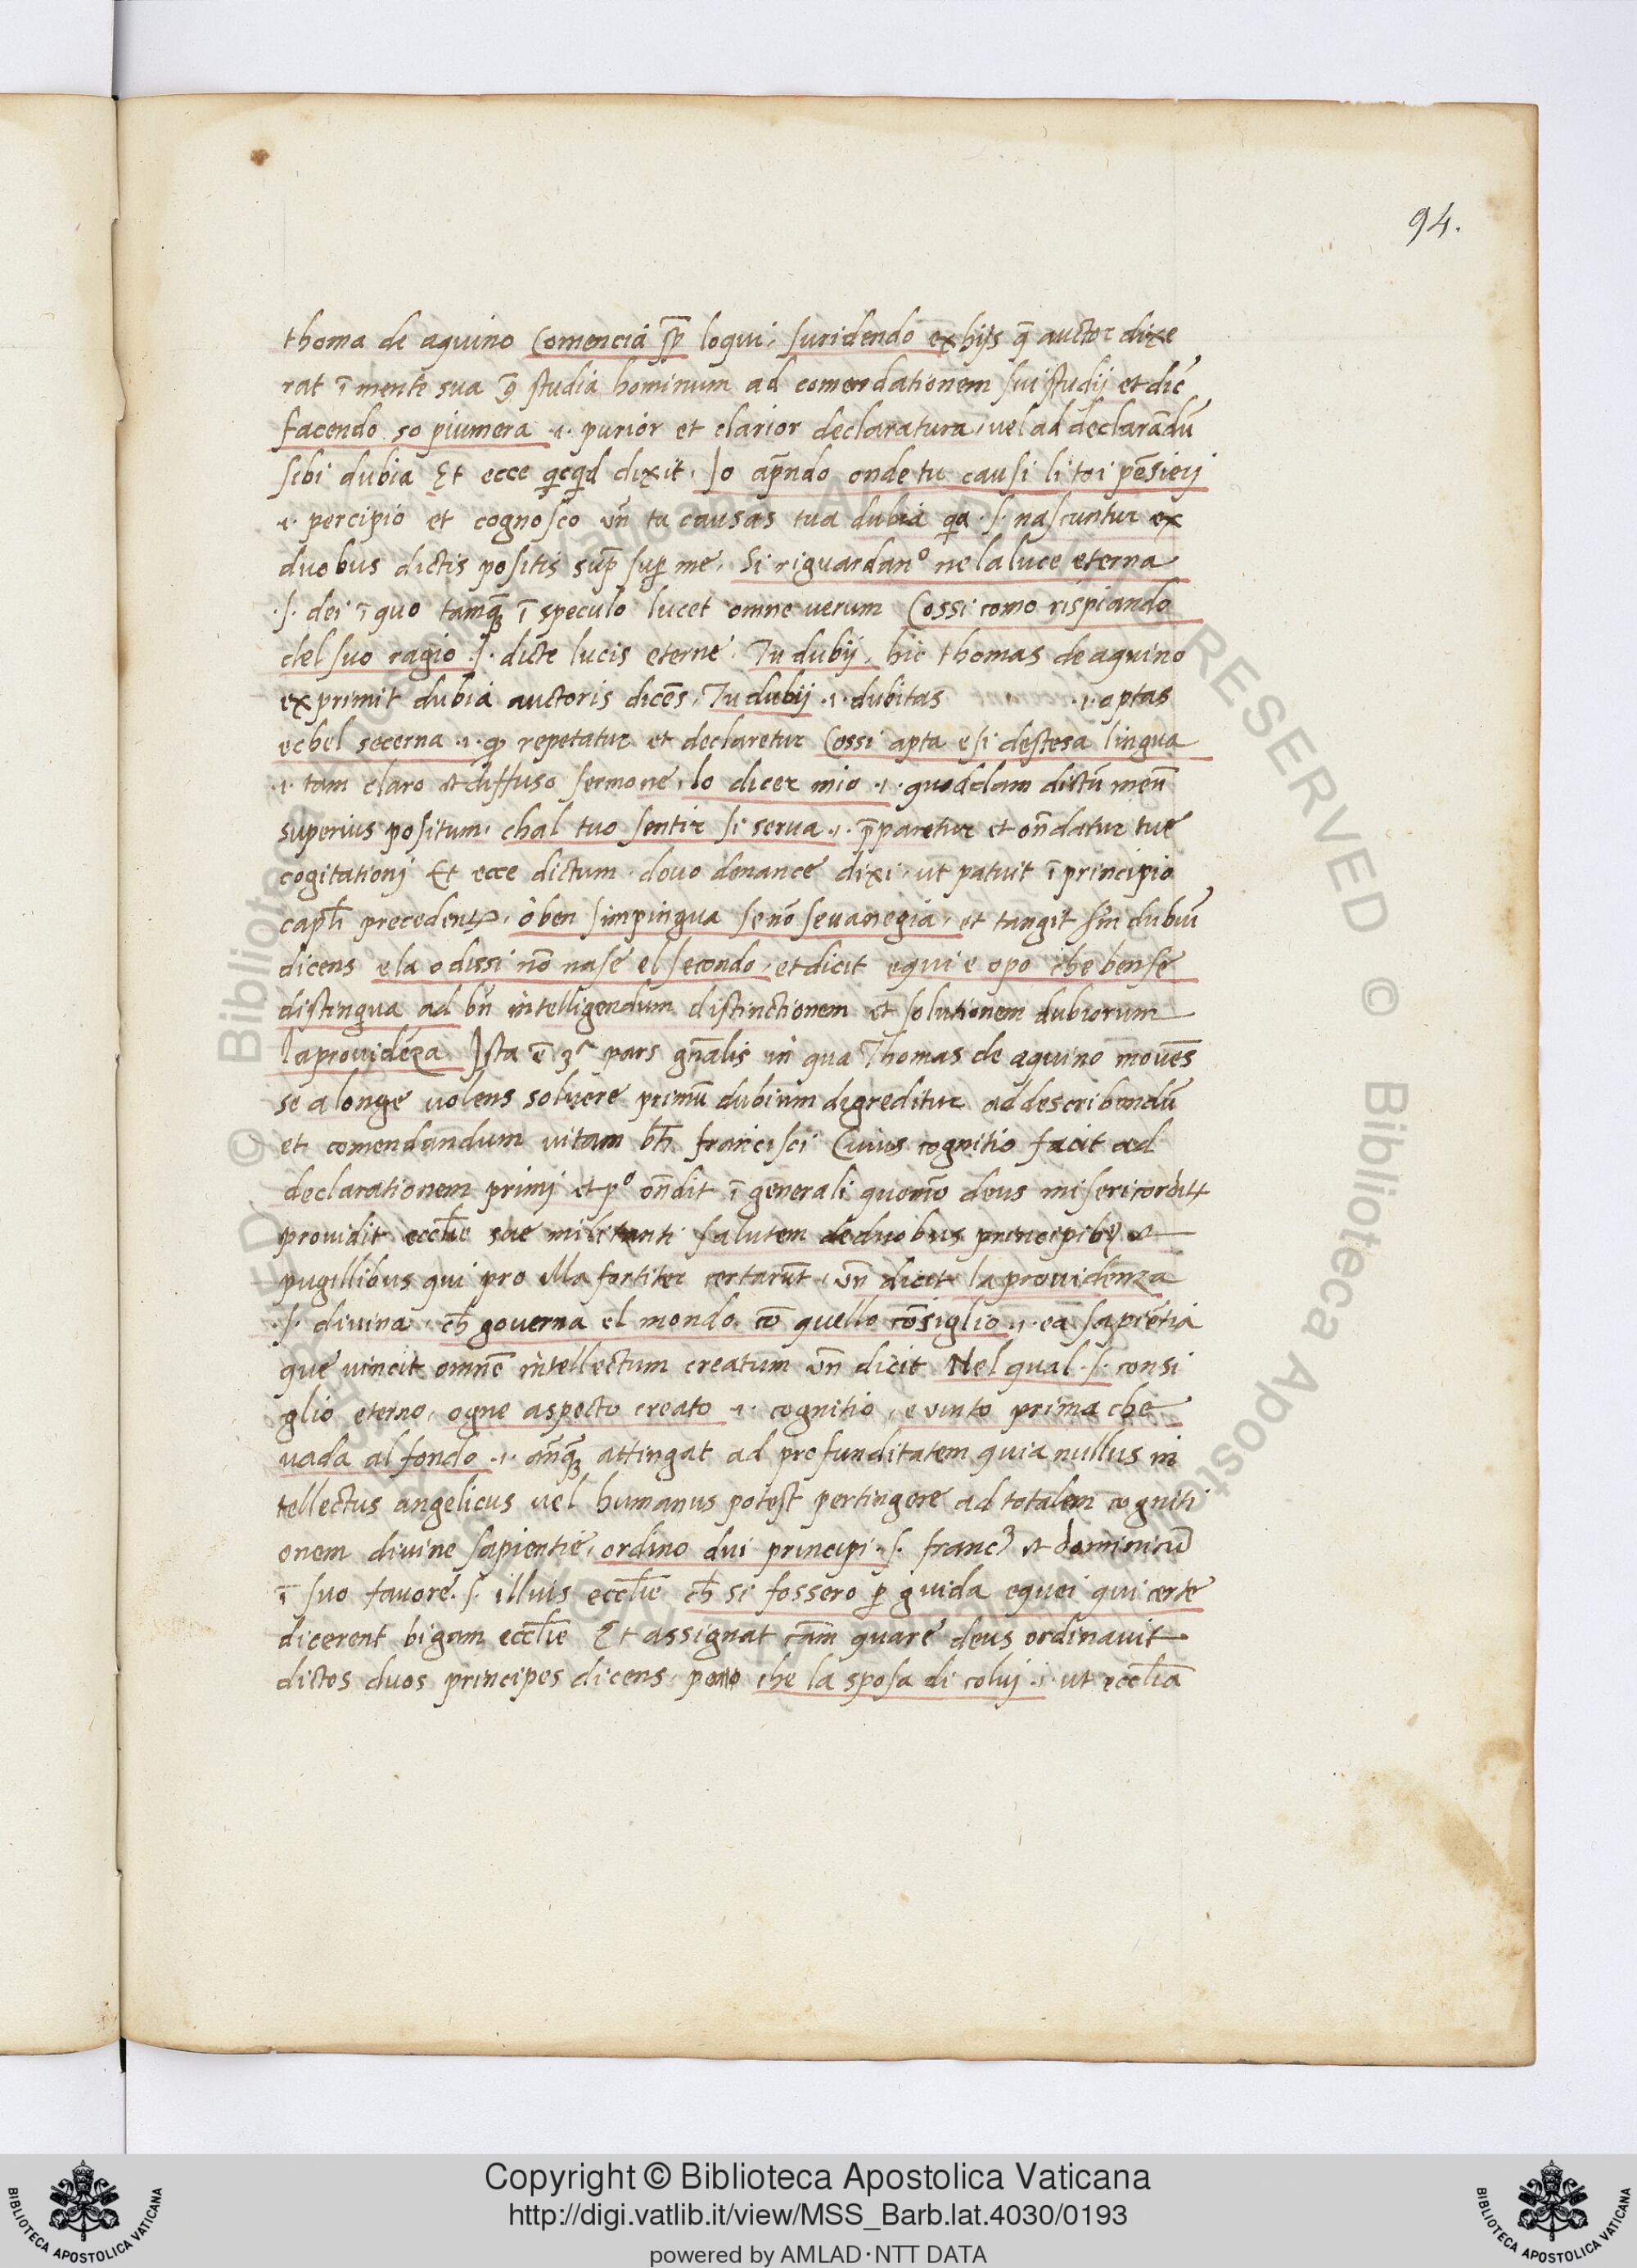 94.
thoma de aquino Comencia sp̄ loqui, suridendo ex hijs q̄ auctor dixe
rat ī mente sua ꝯ̄ studia hominum ad comendationem sui studij et dic̄
facendo so piumera .i. purior et clarior declaratura, uel ad declarādū
sibi dubia Et ecce qcqd dixit. Io apn̄do onde tu causi li toi pēsierj
.i. percipio et cognosco un̄ tu causas tua dubia qa .s. nascuntur ex
duobus dictis positis sup̄ sup me. Si riguardan° ne la luce eterna
.s. dei ī quo tamqꝫ ī speculo lucet omne uerum Cossi como rispiando
del suo ragio .s. dicte lucis eterne. Tu dubij, hic thomas de aquino
exprimit dubia auctoris dicēs. Tu dubij .i. dubitas .i. optas
echel secerna .i. ꝙ repetatur et declaretur Cossi apta e si destesa lingua
.i. tam claro et diffuso sermone, lo dicer mio .i. quoddam dictū meū
superius positum. chal tuo sentir si serua .i. p̄paretur et on̄datur tue
cogitationj Et ecce dictum. douo denance dixi, ut patuit ī principio
capl̄i precedent. o ben simpingua se nō seuanegia, et tangit sm̄ dubiū
dicens e la o dissi nō nase el secondo, et dicit e qui e opo che ben se
distingua ad bn̄ intelligendum distinctionem et solutionem dubiorum
la prouidēza Ista ē 3ᵃ pars gn̄alis in qua Thomas de aquino mouēs
se a longe uolens soluere primū dubium digreditur ad describendū
et comendandum uitam bt̄i francisci Cuius cognitio facit ad
declarationem primj et p° on̄dit ī generali quomō deus misericordit
prouidit eccl̄ie sue militanti salutem de duobus principibꝫ et
pugillibus qui pro illa fortiter certarūt, un̄ dicit la prouidenza
.s. diuina. ch̄ gouerna el mondo cō quello cōsiglio .i. ea sapiētia
que uincit omnē intellectum creatum un̄ dicit Nel qual .s. consi
glio eterno, ogne aspecto creato .i. cognitio, e uinto prima che
uada al fondo .i. an̄qꝫ attingat ad profunditatem quia nullus in
tellectus angelicus uel humanus potest pertingere ad totalem cogniti
onem diuine sapientie, ordino dui principi .s. franc3 et dominicū
ī suo fauore .s. illius eccl̄ie ch̄ si fossero ꝑ guida e quei qui certe
dicerent bigam eccl̄ie Et assignat cām quare deus ordinauit
dictos duos principes dicens, pero che la sposa di coluj .i. ut eccl̄ia
Copyright © Biblioteca Apostolica Vaticana
http://digi.vatlib.it/view/MSS_Barb.lat.4030/0193
powered by AMLAD·NTT DATA
BIBLIOTECA APOSTOLICA VATICANA
BIBLIOTECA APOSTOLICA VATICANA